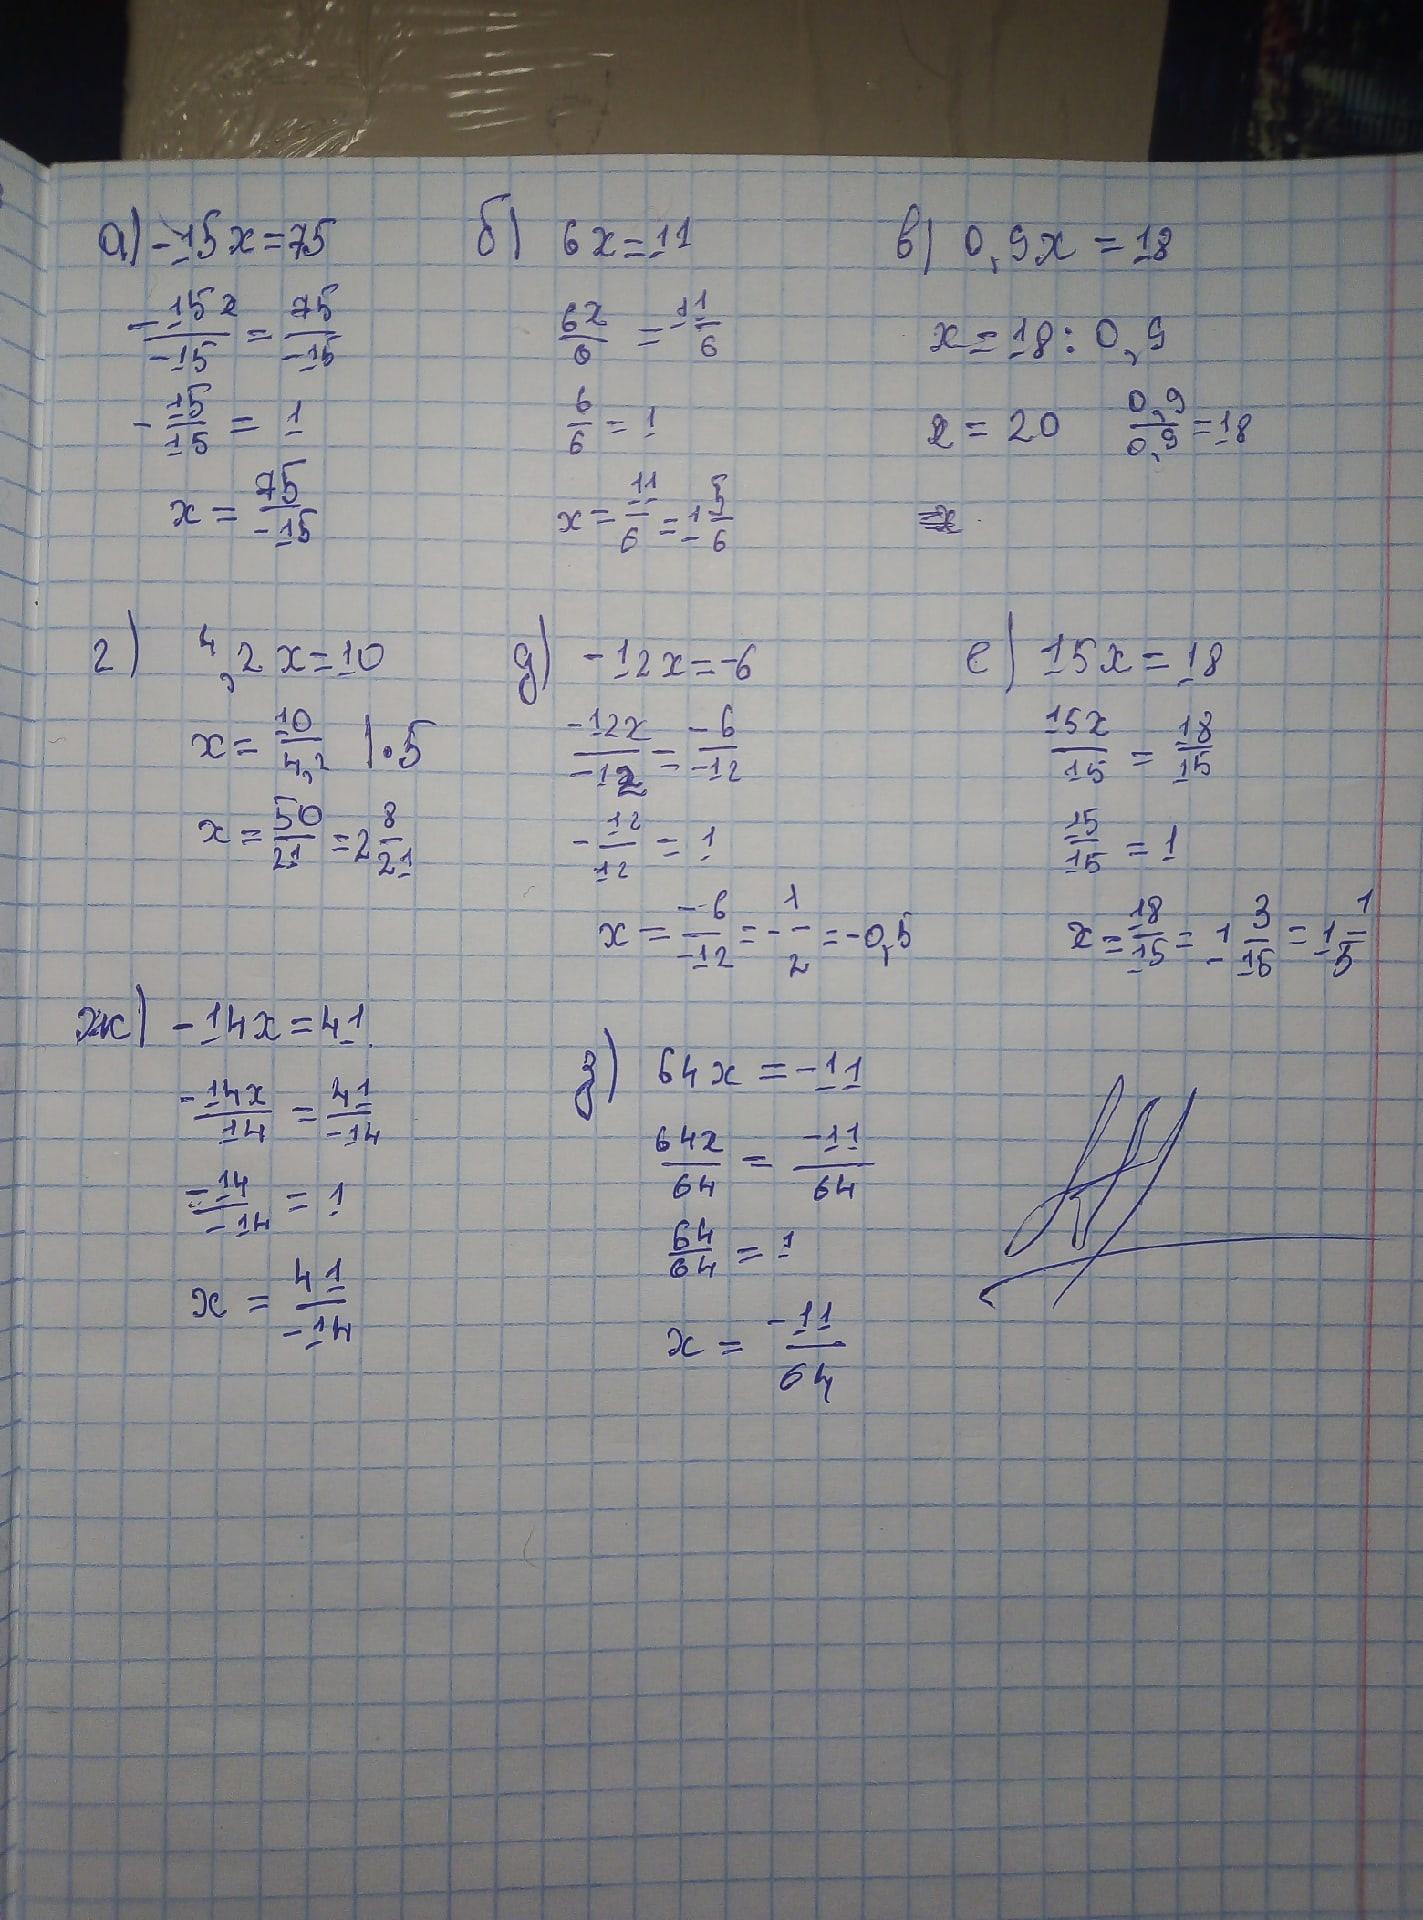 а) -15x=75
-15x/-15 = 75/-15
-15/15 = 1
x = 75/-15
б) 6x=11
6x/6 = 11/6
6/6 = 1
x = 11/6 = 1 5/6
в) 0,9x = 18
x = 18 : 0,9
x = 20 0,9/0,9 = 18
г) 4,2x=10
x = 10/4,2 | · 5
x = 50/21 = 2 8/21
д) -12x=-6
-12x/-12 = -6/-12
-12/12 = 1
x = -6/-12 = -1/2 = -0,5
е) 15x = 18
15x/15 = 18/15
15/15 = 1
x = 18/15 = 1 3/15 = 1 1/5
ж) -14x=41
-14x/14 = 41/-14
-14/-14 = 1
x = 41/-14
з) 64x = -11
64x/64 = -11/64
64/64 = 1
x = -11/64